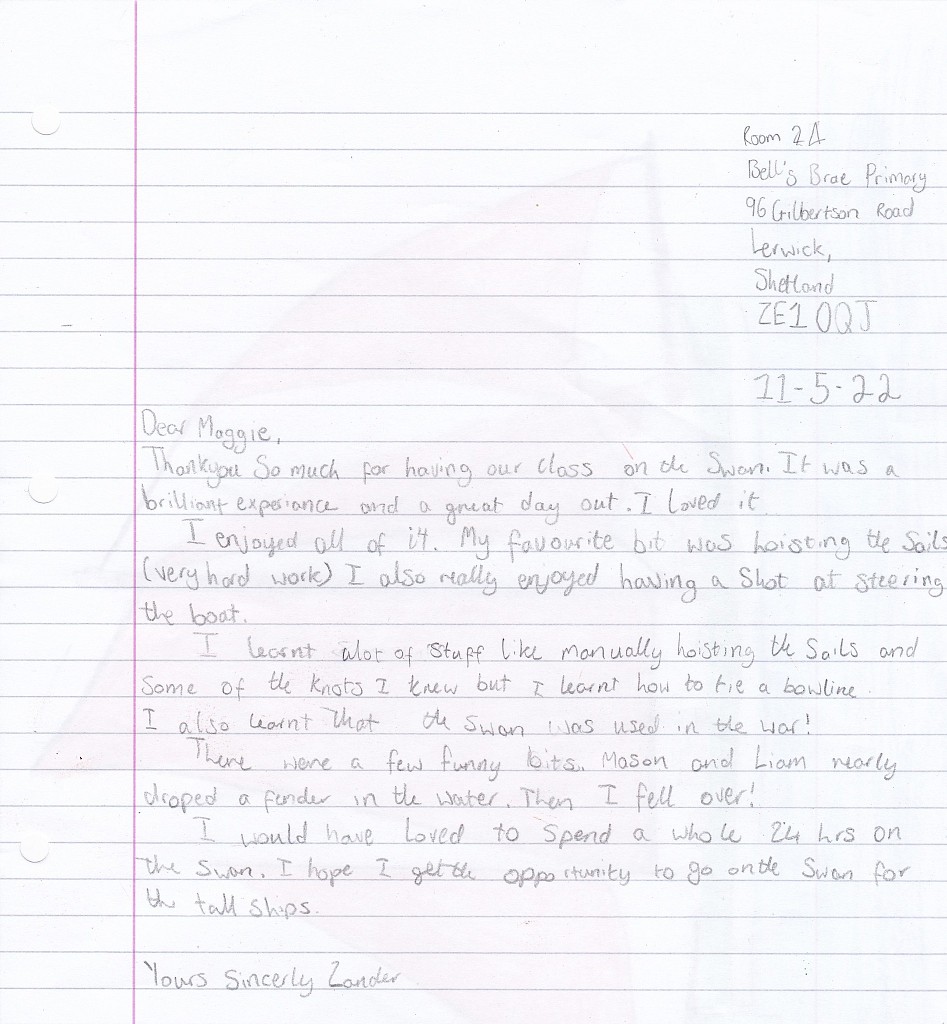 Room 24
Bell's Brae Primary
96 Gilbertson Road
Lerwick,
Shetland
ZE1 0QJ
11-5-22
Dear Maggie,
Thankyou So much for having our class on the Swan. It was a
brilliant experiance and a great day out. I Loved it
I enjoyed all of it. My favourite bit was hoisting the Sails
(very hard work) I also really enjoyed having a Shot at steering
the boat.
I learnt alot of stuff like manually hoisting the Sails and
Some of the knots I knew but I learnt how to tie a bowline.
I also learnt That the Swan was used in the war!
There were a few funny bits. Mason and Liam nearly
droped a fender in the water. Then I fell over!
I would have Loved to Spend a whole 24 hrs on
the Swan. I hope I get the opportunity to go on the Swan for
the tall Ships.
Yours Sincerly Zander